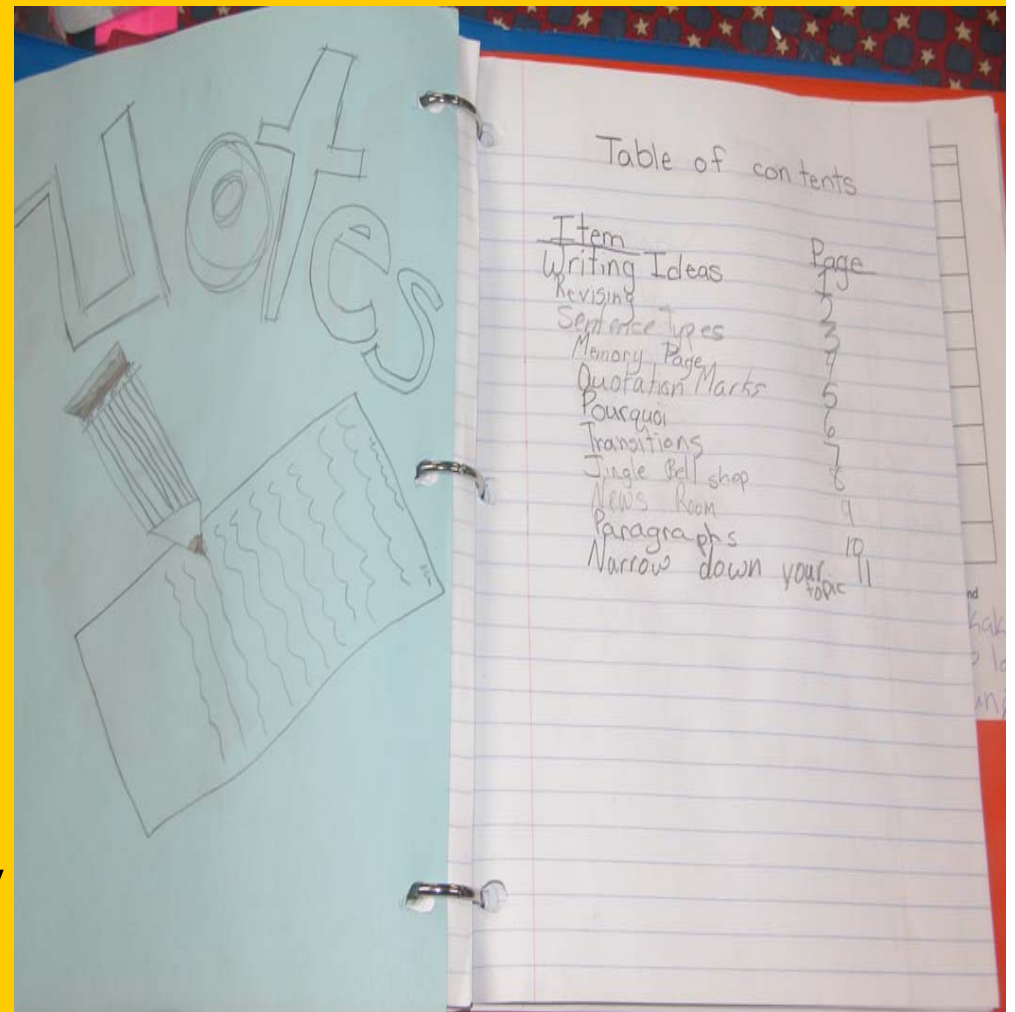 Notes
Table of contents
Item Page
Writing Ideas 1
Revising 2
Sentence Types 3
Memory Page 4
Quotation Marks 5
Pourquoi 6
Transitions 7
Jingle Bell shop 8
News Room 9
Paragraphs 10
Narrow down your 11
topic